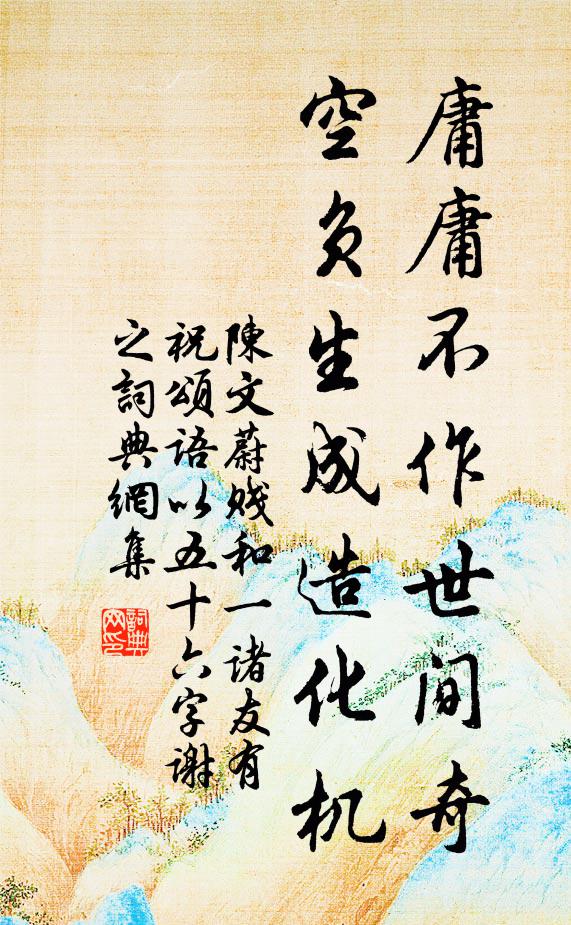 庸庸不作世间奇
空负生成造化机
陳文蔚賤和一諸友有
祝頌語以五十六字謝
之詞典網集
詞典网印